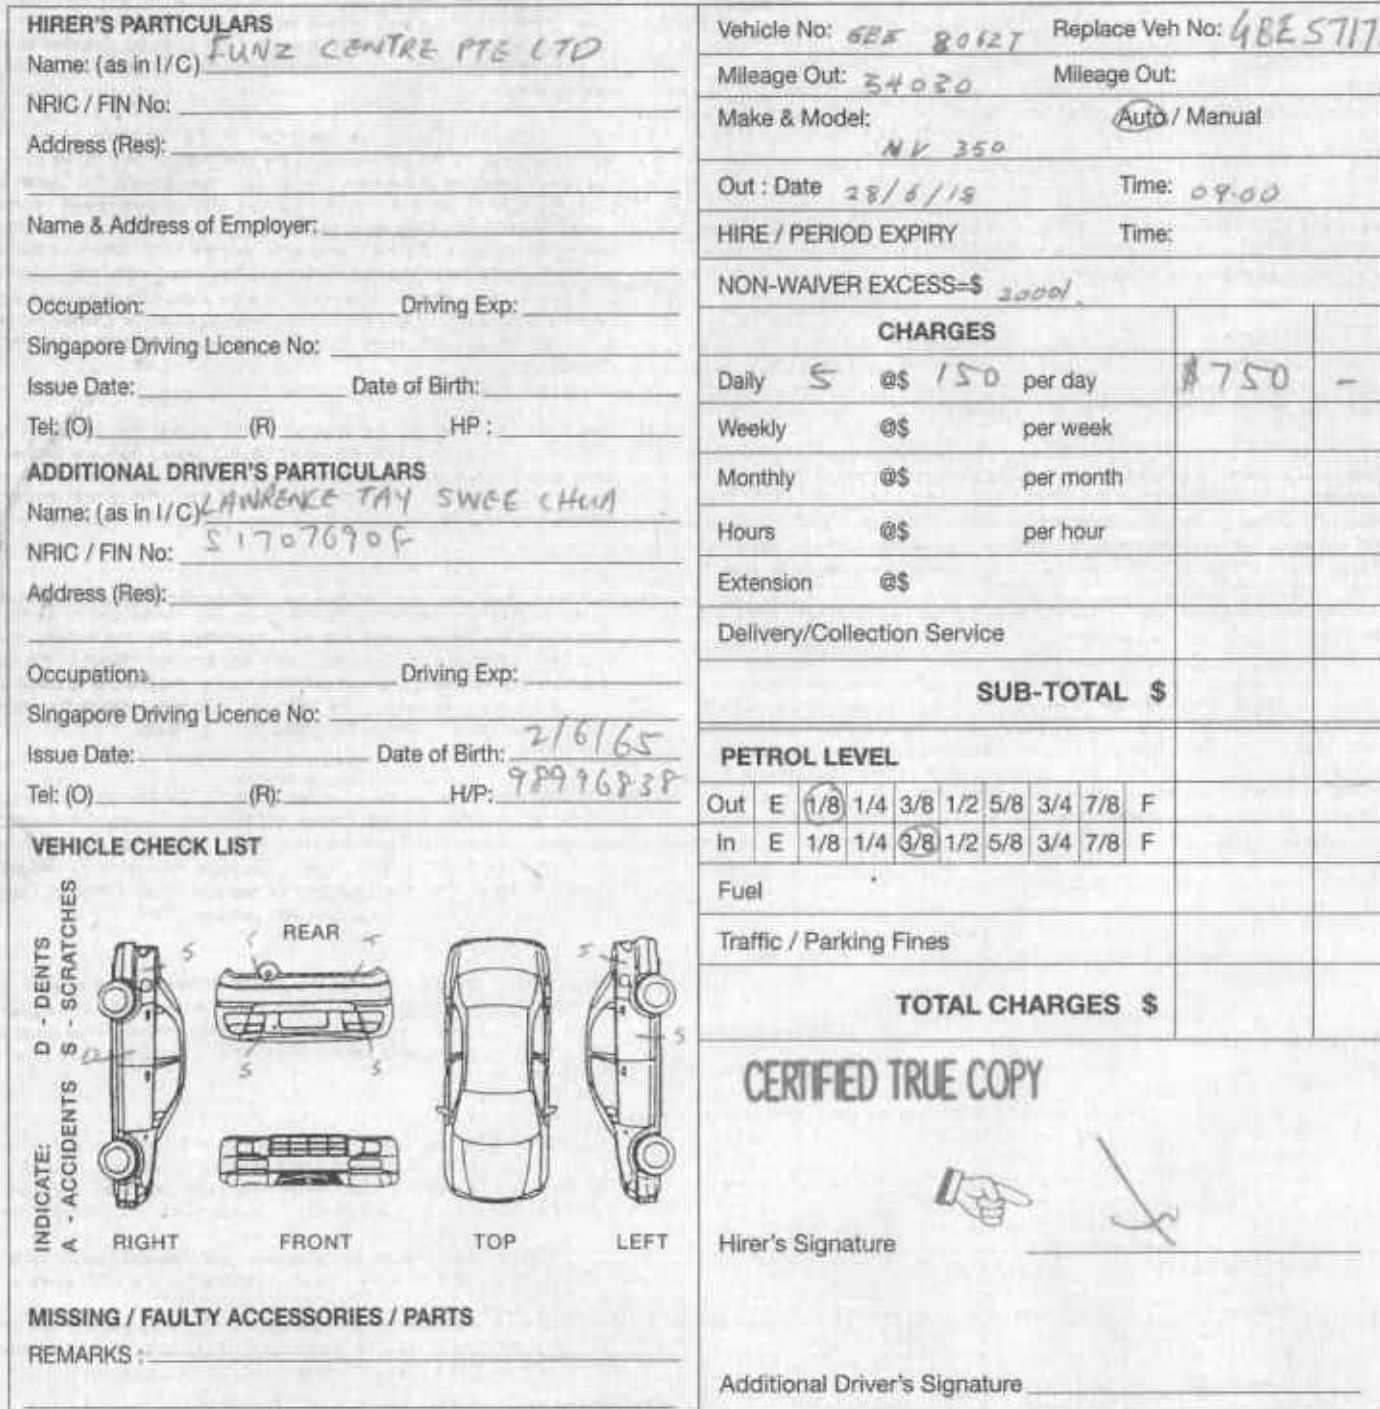 HIRER'S PARTICULARS
Name: (as in I/C) FUNZ CENTRE PTE LTD
NRIC / FIN No:
Address (Res):
Name & Address of Employer:
Occupation: Driving Exp:
Singapore Driving Licence No:
Issue Date: Date of Birth:
Tel: (O) (R) HP :
ADDITIONAL DRIVER'S PARTICULARS
Name: (as in I/C) LAWRENCE TAY SWEE CHUA
NRIC / FIN No: S1707690F
Address (Res):
Occupation: Driving Exp:
Singapore Driving Licence No:
Issue Date: Date of Birth: 2/6/65
Tel: (O) (R): H/P: 98996838
VEHICLE CHECK LIST
INDICATE: D - DENTS
A - ACCIDENTS S - SCRATCHES
REAR
S
S
S
S
S
RIGHT FRONT TOP LEFT
MISSING / FAULTY ACCESSORIES / PARTS
REMARKS :
Vehicle No: 8062T Replace Veh No: GBE 5717
Mileage Out: 34030 Mileage Out:
Make & Model: Auto / Manual
NV 350
Out : Date 28/6/18 Time: 09.00
HIRE / PERIOD EXPIRY Time:
NON-WAIVER EXCESS=$ 2000/.
CHARGES
Daily 5 @$ 150 per day $750 -
Weekly @$ per week
Monthly @$ per month
Hours @$ per hour
Extension @$
Delivery/Collection Service
SUB-TOTAL $
PETROL LEVEL
Out E 1/8 1/4 3/8 1/2 5/8 3/4 7/8 F
In E 1/8 1/4 3/8 1/2 5/8 3/4 7/8 F
Fuel
Traffic / Parking Fines
TOTAL CHARGES $
CERTIFIED TRUE COPY
Hirer's Signature
Additional Driver's Signature